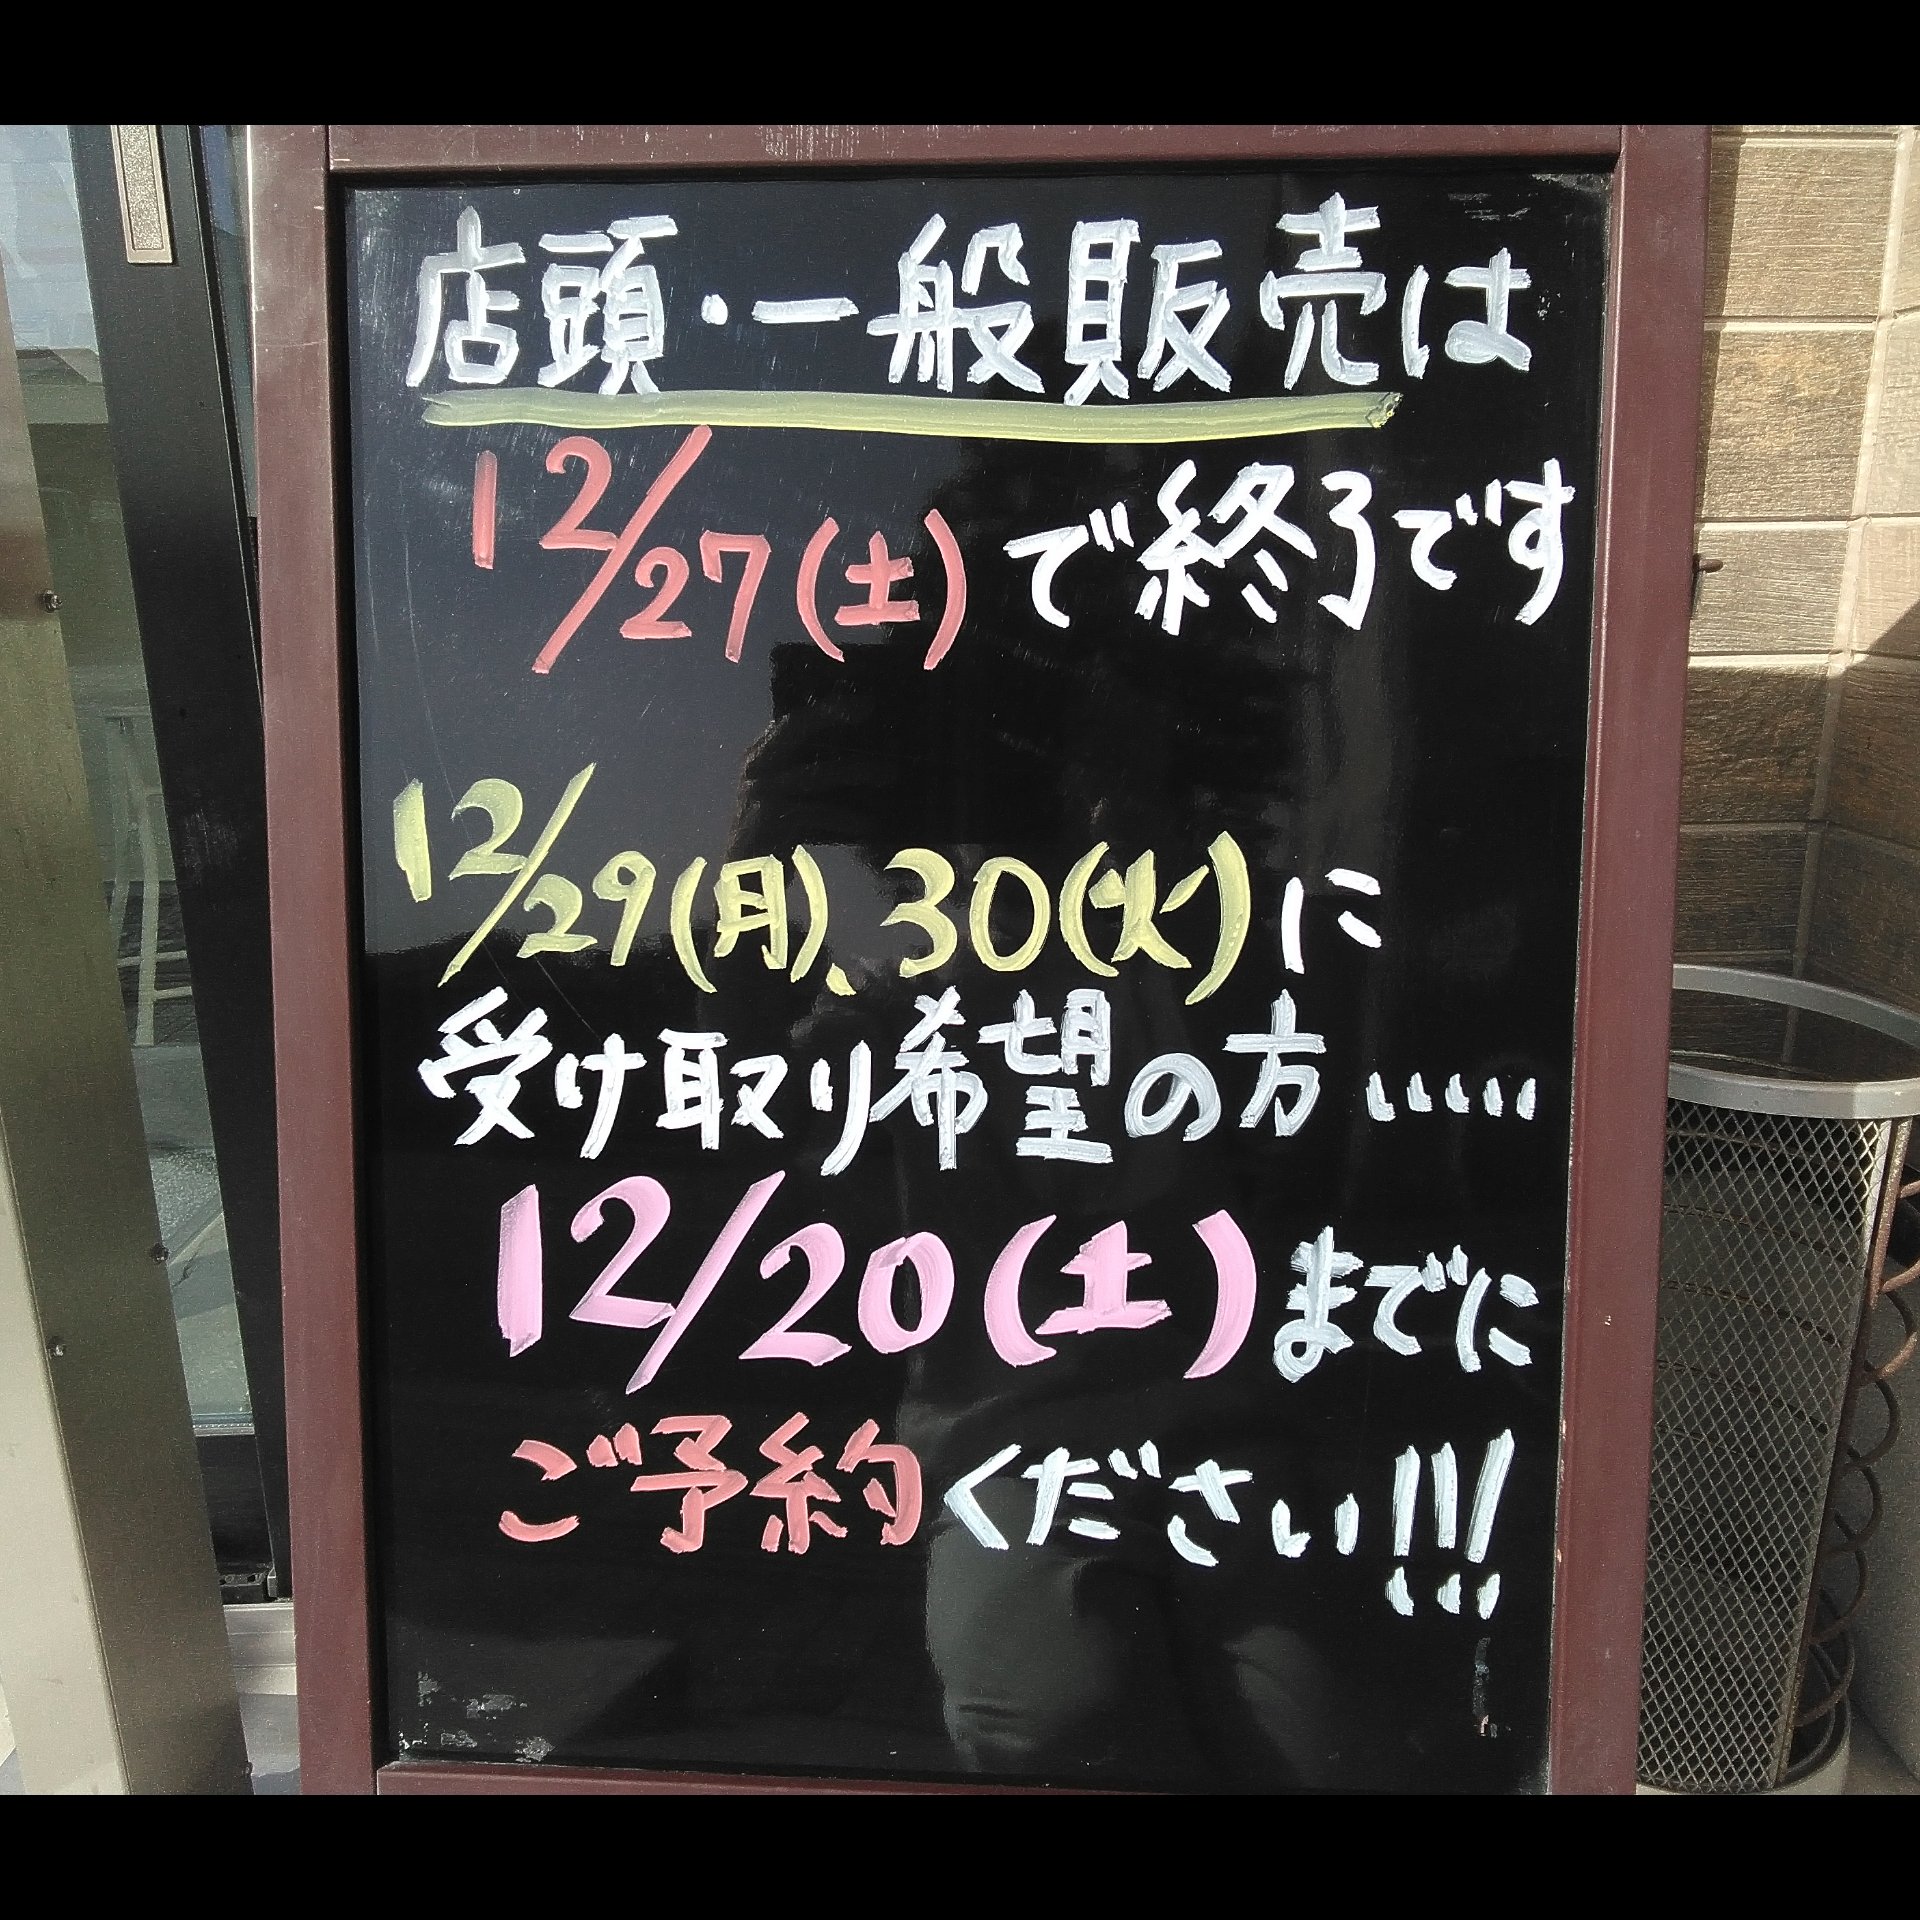 店頭・一般販売は
12/27(土)で終了です
12/29(月)、30(火)に
受け取り希望の方.....
12/20(土)までに
ご予約ください!!!